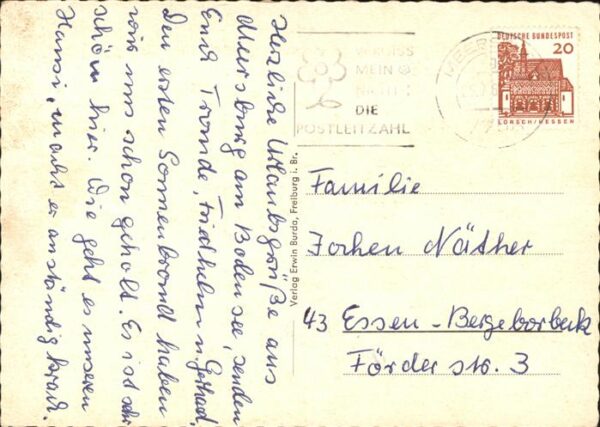 Herzliche Urlaubsgrüße aus
Meersburg am Bodensee, senden
Euch Traude, Friedhelm u. Gerhard.
Den ersten Sonnenbrand haben
wir uns schon geholt. Es ist sehr
schön hier. Wie geht es unseren
Hansi, macht er anständig Krach.
VERGISS
MEIN
NICHT
DIE
POSTLEITZAHL
MEERSB
DEUTSCHE BUNDESPOST
20
LORSCH/HESSEN
Verlag Erwin Burda, Freiburg i. Br.
Familie
Jochen Näther
43 Essen-Bergeborbeck
Förder str. 3